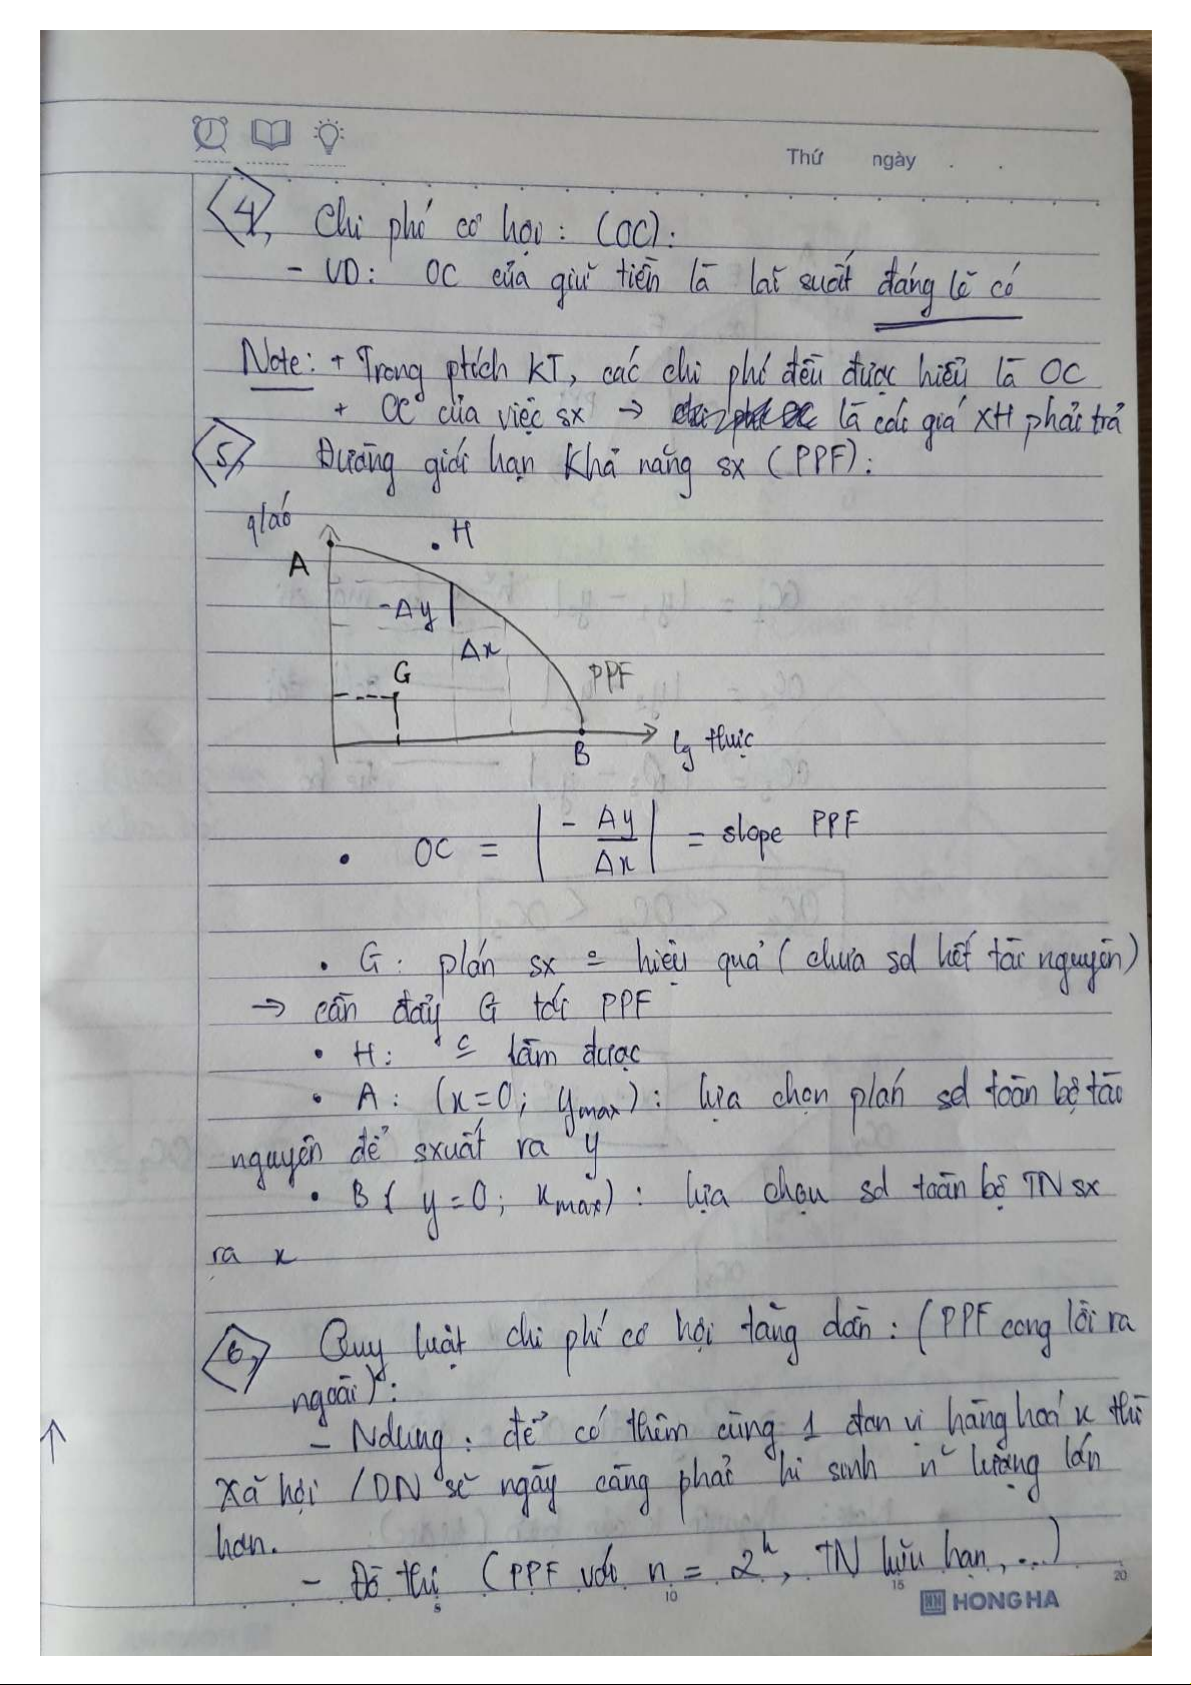 Thứ ngày . .
4, Chi phí cơ hội : (OC) :
- VD : OC của giữ tiền là lãi suất đáng lẽ có
Note : + Trong ptích KT, các chi phí đều được hiểu là OC
+ OC của việc sx → là cái giá XH phải trả
5, Đường giới hạn khả năng sx (PPF) :
q/áo
H
A
-Δy
Δx
G
PPF
B
lg thực
• OC = | - Δy / Δx | = slope PPF
• G : p/án sx = hiệu quả (chưa sd hết tài nguyên)
→ cần đẩy G tới PPF
• H : làm được
• A : (x=0 ; ymax) : lựa chọn p/án sd toàn bộ tài
nguyên để sxuất ra y
• B ( y=0 ; xmax) : lựa chọn sd toàn bộ TN sx
ra x
6, Quy luật chi phí cơ hội tăng dần : (PPF cong lồi ra
ngoài) :
- Ndung : để có thêm cùng 1 đơn vị hàng hoá x thì
xã hội /DN sẽ ngày càng phải hi sinh n~ lượng lớn
hơn.
- Đồ thị (PPF với n = 2^h, TN hữu hạn, ...)
5 10 15 20
HONG HA